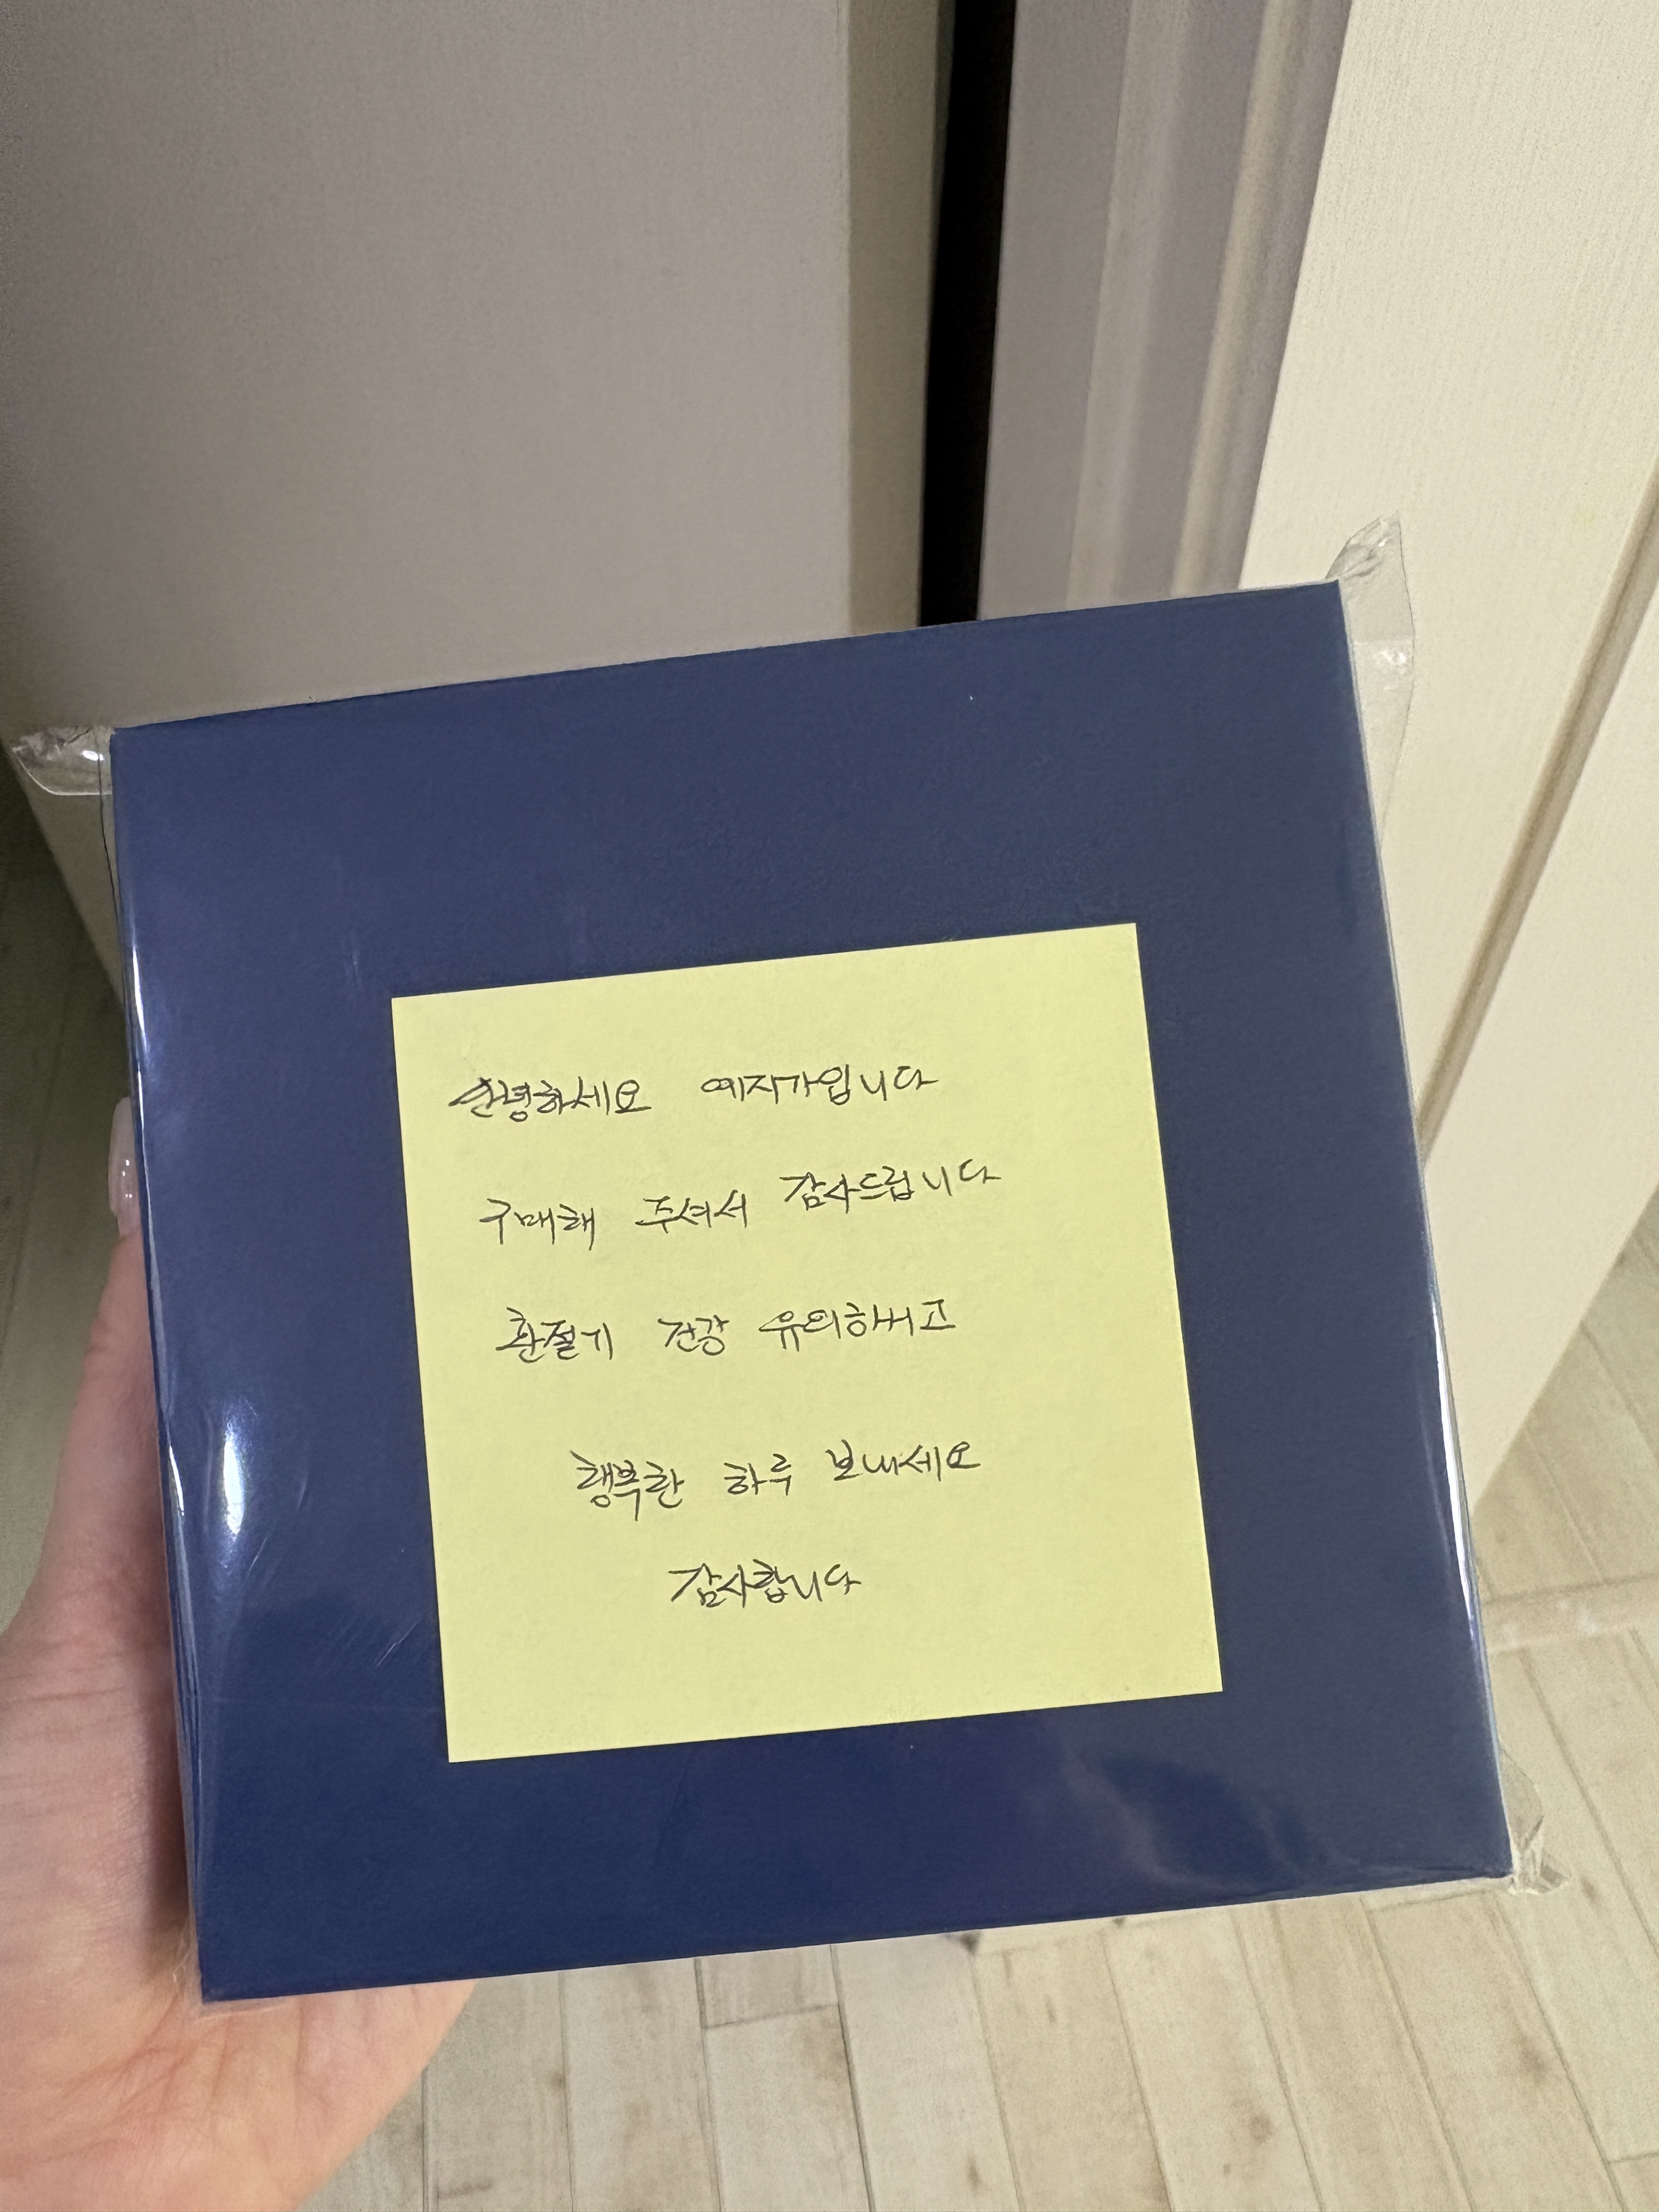 안녕하세요 예지가입니다
구매해 주셔서 감사드립니다
환절기 건강 유의하시고
행복한 하루 보내세요
감사합니다